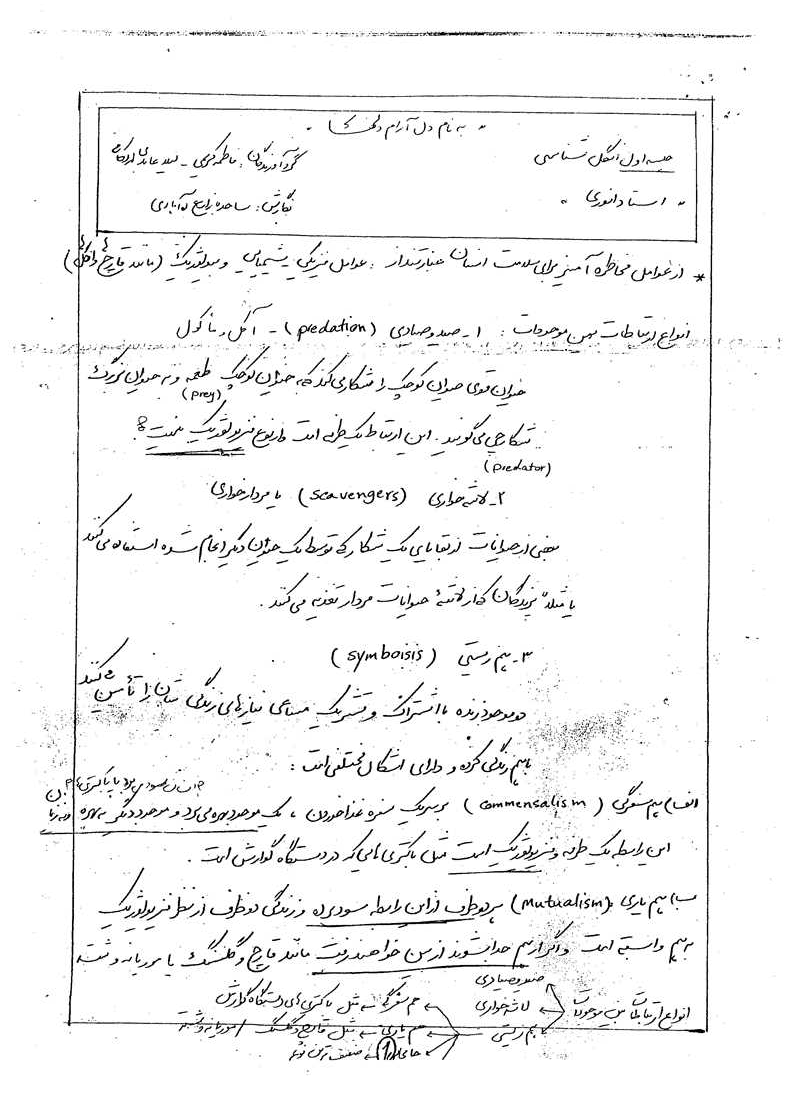 به نام دل آرام دلها
جلسه اول انگل شناسی
گردآورندگان: فاطمه کریمی -
استاد انوری
نگارش: ساجده زارع ده آبادی
* از عوامل مخاطره آمیز برای سلامت انسان عبارتنداز: عوامل فیزیکی - شیمیایی و بیولوژیک (مانند قارچ ها و انگل ها)
انواع ارتباطات بین موجودات: ۱- صید و صیادی (predation) - آکل و مأکول
حیوان قوی حیوان کوچک را شکار می کند که به حیوان کوچک طعمه و به حیوان بزرگ
(prey)
شکارچی می گویند. این ارتباط یک طرفه است و از نوع فیزیولوژیک نیست.
(predator)
۲- لاشه خواری (scavengers) یا مردارخواری
بعضی از حیوانات از بقایای یک شکار که توسط یک حیوان دیگر انجام شده استفاده می کنند
یا مثلاً پرندگان که از لاشهٔ حیوانات مردار تغذیه می کنند.
۳- هم زیستی (symboisis)
دو موجود زنده با اشتراک و تشریک مساعی نیازهای زندگی شان را تأمین می کنند
باهم زندگی کرده و دارای اشکال مختلفی است:
انسان سودی برد یا باکتری
الف) هم سفرگی (commensalism) بر سر یک سفره غذا خوردن، یک موجود بهره می برد و موجود دیگر نه بهره و نه زیان
این رابطه یک طرفه و فیزیولوژیک است مثل باکتری هایی که در دستگاه گوارش است.
ب) هم یاری (Mutualism): هر دو طرف از این رابطه سود می برند و زندگی دو طرف از نظر فیزیولوژیک
به هم وابسته است و اگر از هم جدا بشوند از بین خواهند رفت مانند قارچ و گلسنگ یا موریانه و
انواع ارتباطات بین موجودات
صید و صیادی
لاشه خواری
هم زیستی
هم سفرگی مثل باکتری های دستگاه گوارش
هم یاری مثل قارچ و گلسنگ / موریانه و
1